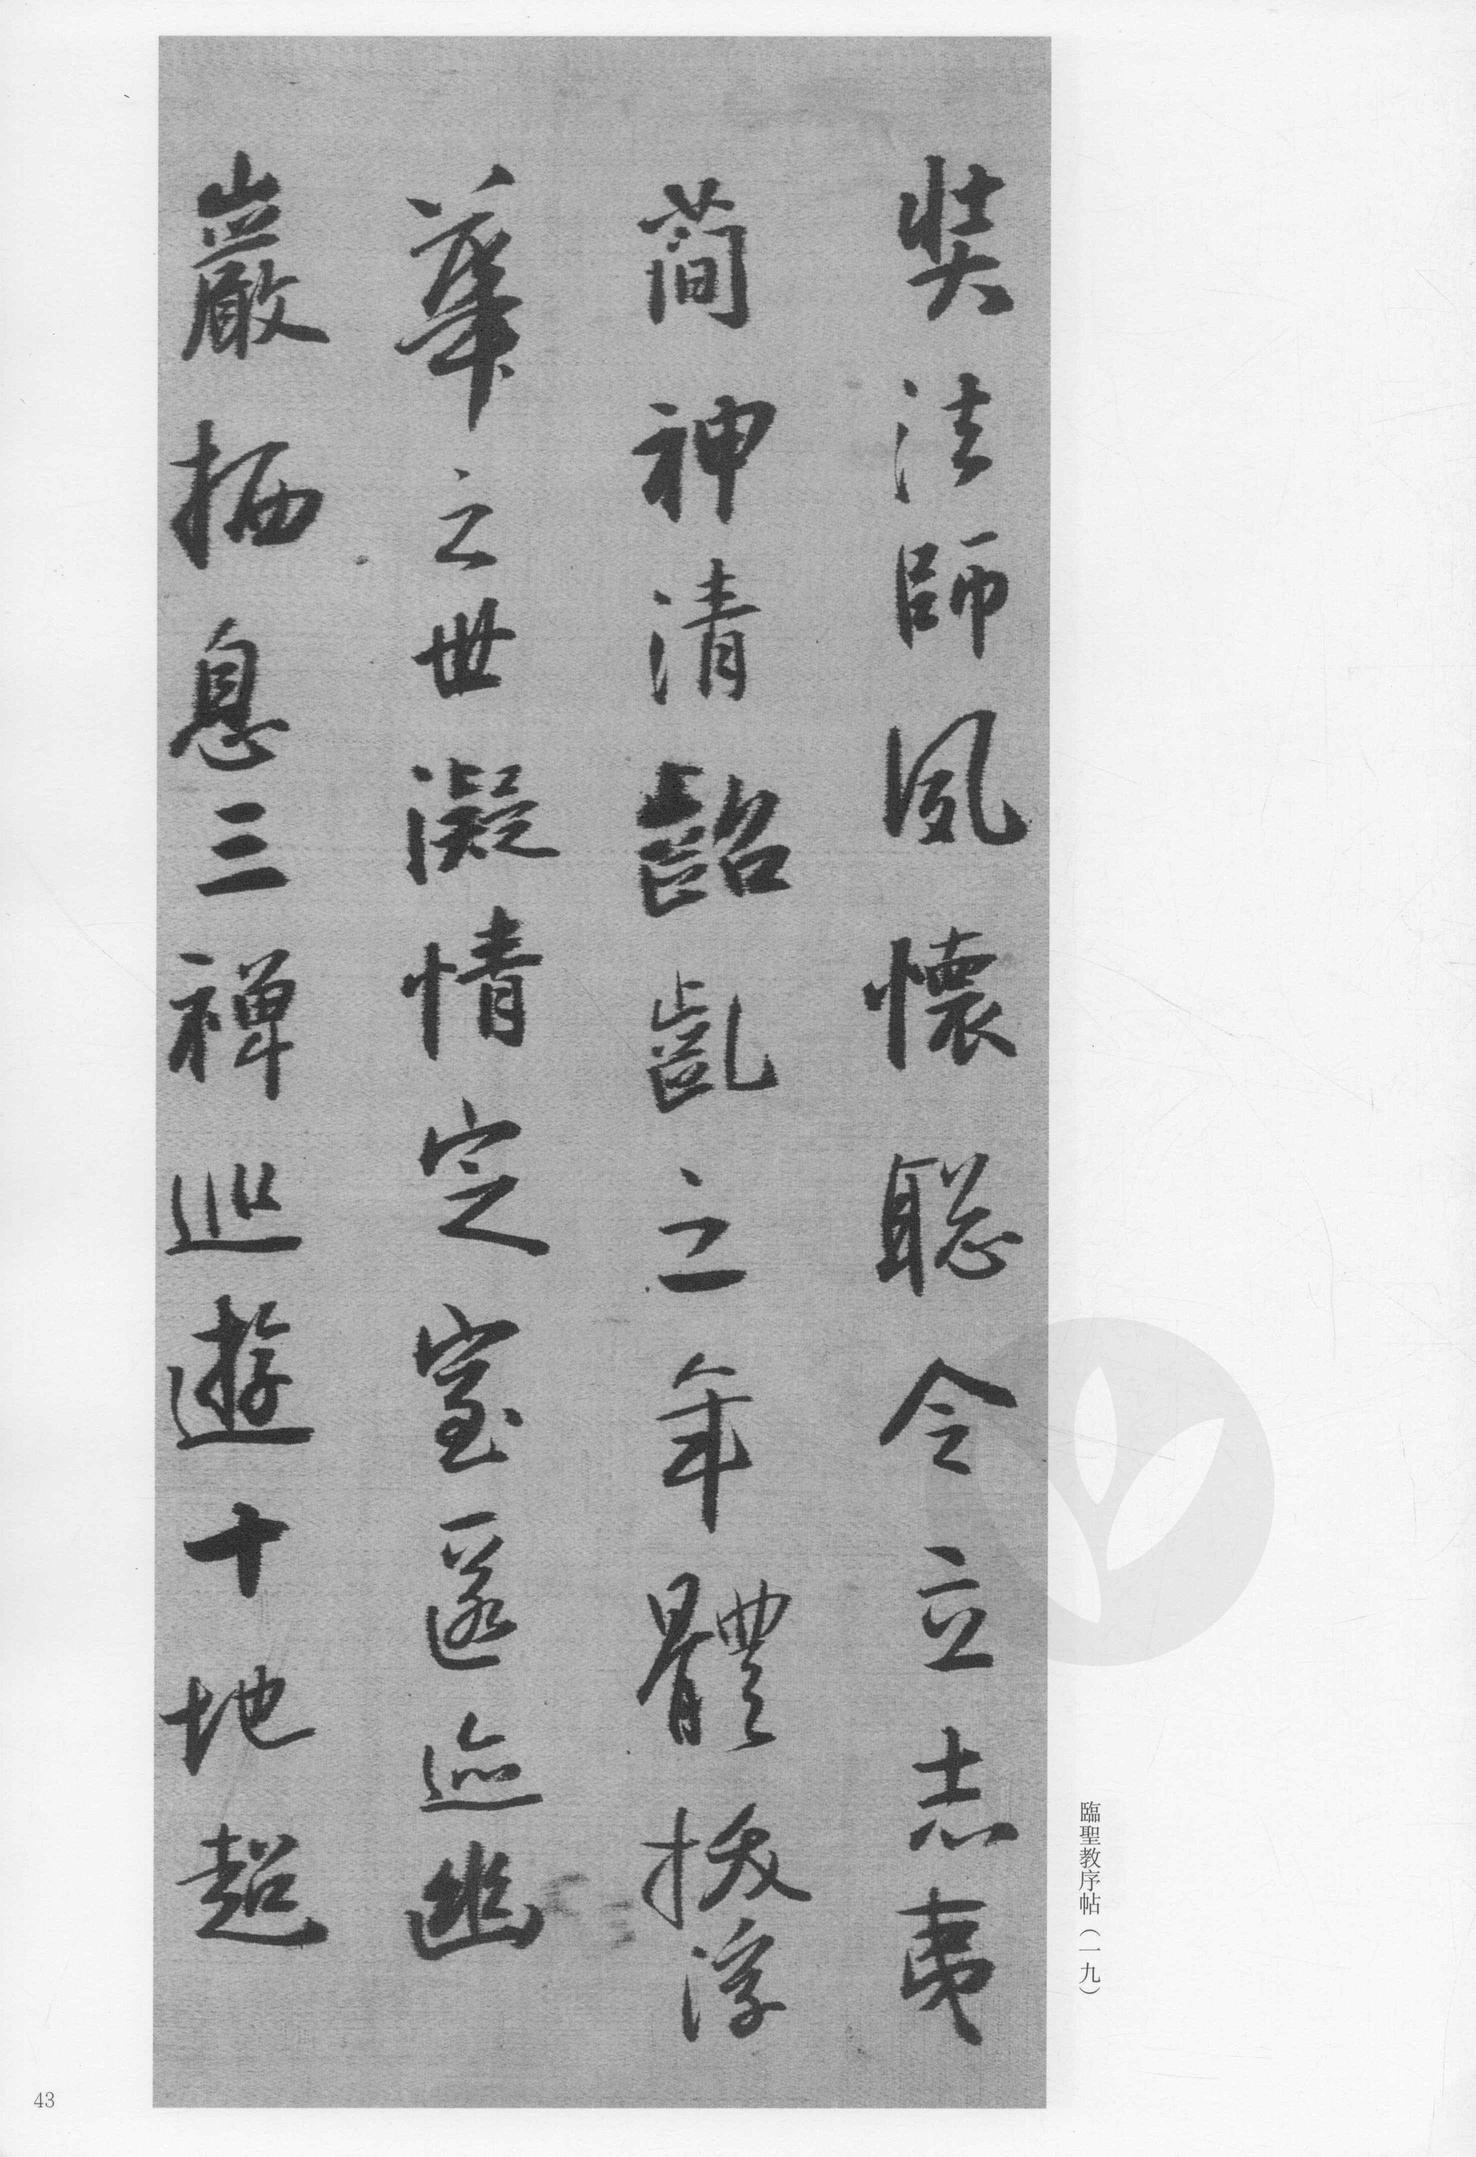 奘法師夙懷聡令立志夷
蕳神清齠齓之年體拔浮
華之世凝情定室匿迹幽
巖栖息三禪巡遊十地超
臨聖教序帖（一九）
43